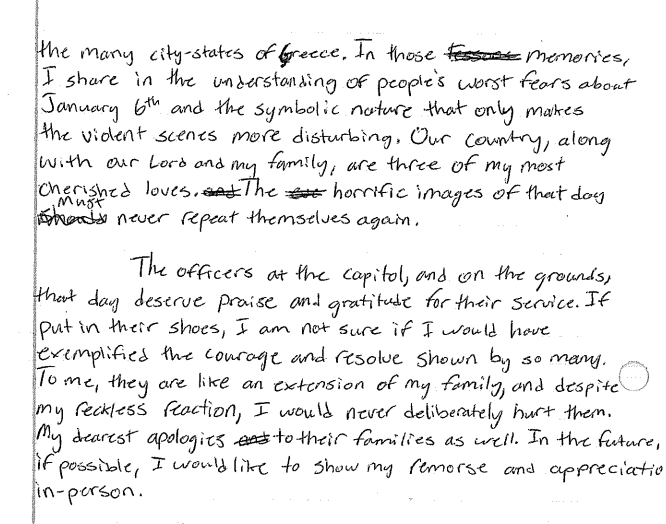 the many city-states of Greece. In those memories,
I share in the understanding of people's worst fears about
January 6th and the symbolic nature that only makes
the violent scenes more disturbing. Our country, along
with our Lord and my family, are three of my most
cherished loves. and The horrific images of that day
Must
should never repeat themselves again.
The officers at the capitol, and on the grounds,
that day deserve praise and gratitude for their service. If
put in their shoes, I am not sure if I would have
exemplified the courage and resolve shown by so many.
To me, they are like an extension of my family, and despite
my reckless reaction, I would never deliberately hurt them.
My dearest apologies and to their families as well. In the future,
if possible, I would like to show my remorse and appreciatio
in-person.